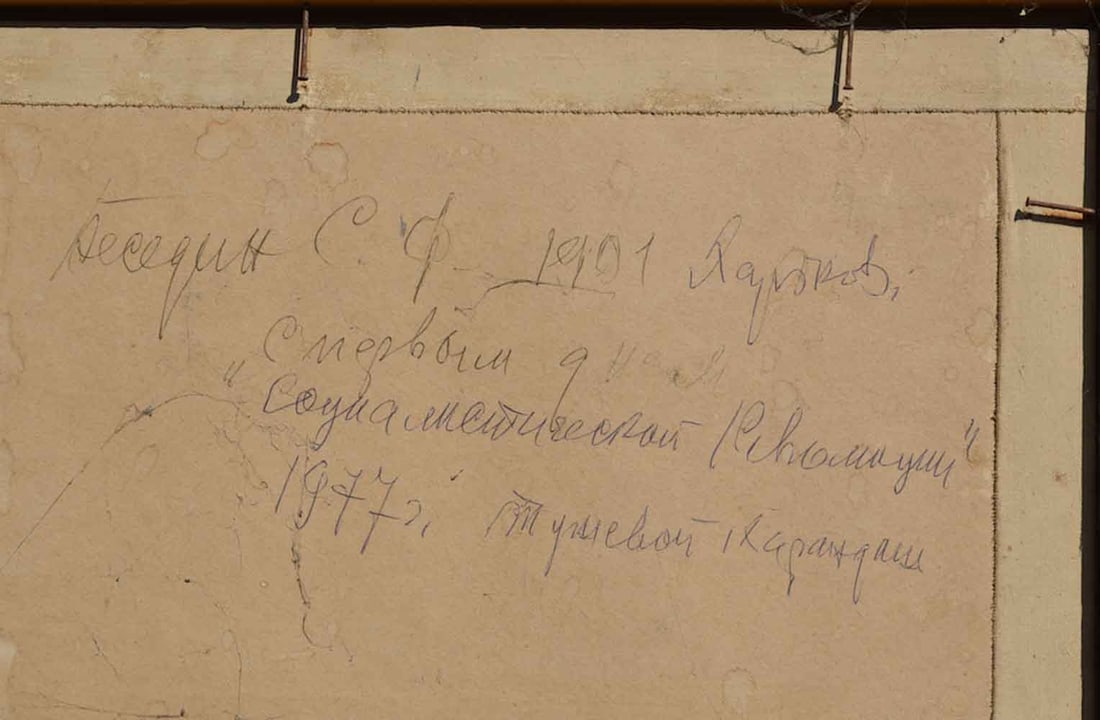 Беседин С. Ф. 1901 Харьков.
С первым днём
"Социалистической Революции"
1977 г. Тушевой Карандаш